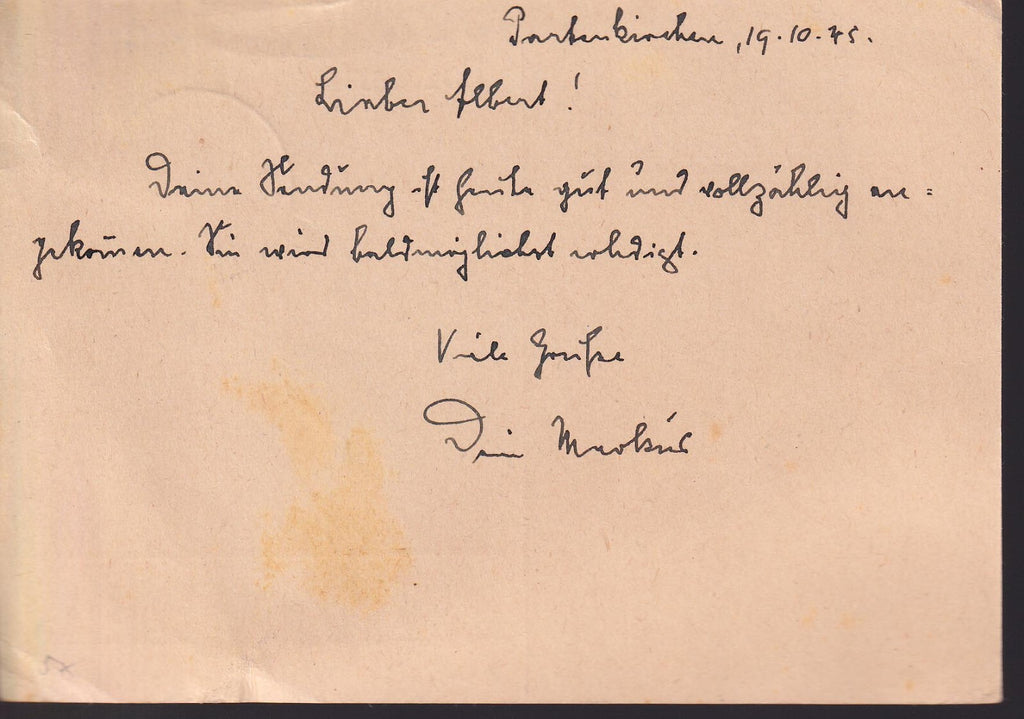 Partenkirchen, 19.10.45.
Lieber Albert!
Deine Sendung ist heute gut und vollzählig an=
gekommen. Sie wird baldmöglichst erledigt.
Viele Grüße
Dein Markus